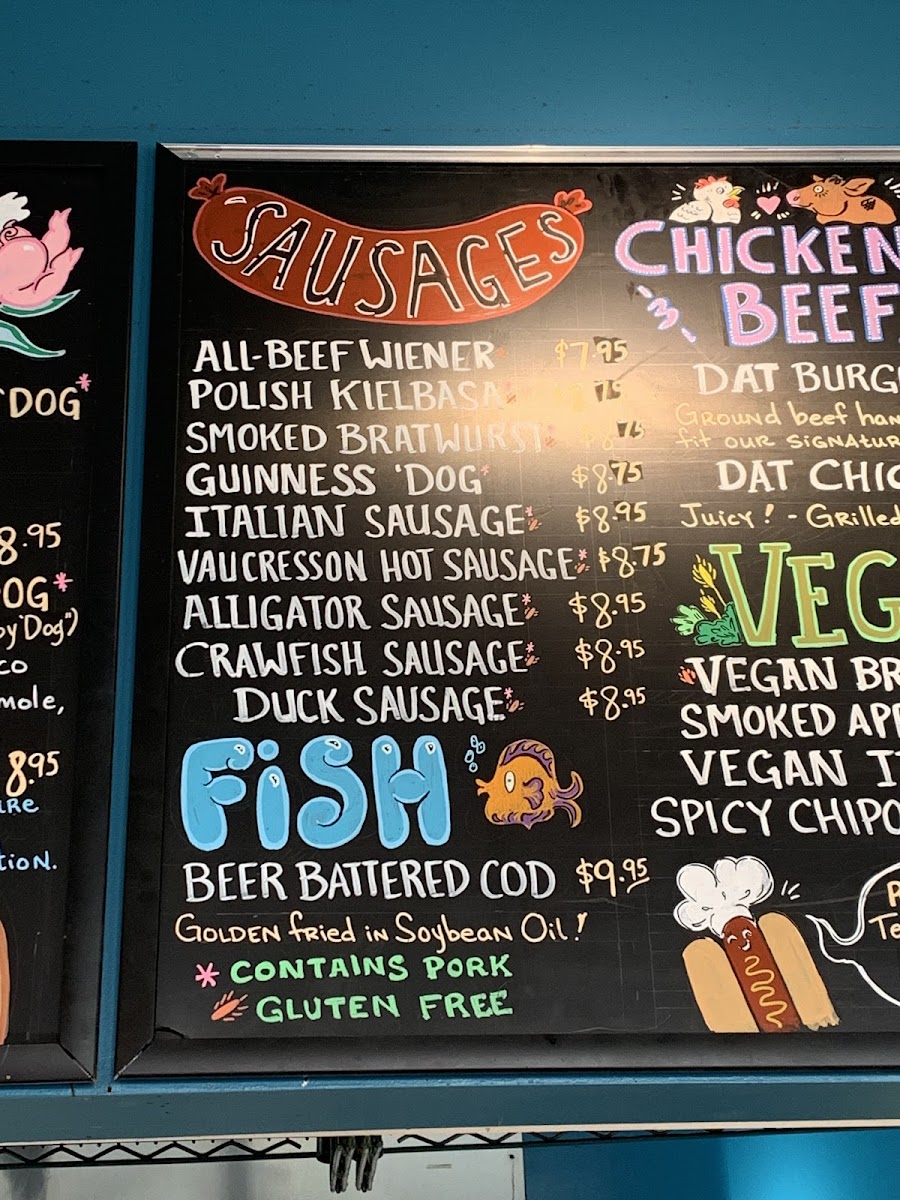 'DOG*
8.95
OG*
by 'Dog")
co
mole,
8.95
are
tion.
SAUSAGES
ALL-BEEF WIENER $7.95
POLISH KIELBASA
SMOKED BRATWURST $8.75
GUINNESS 'DOG* $8.75
ITALIAN SAUSAGE* $8.95
VAUCRESSON HOT SAUSAGE* $8.75
ALLIGATOR SAUSAGE* $8.95
CRAWFISH SAUSAGE* $8.95
DUCK SAUSAGE* $8.95
FiSH
BEER BATTERED COD $9.95
GOLDEN fried in Soybean Oil!
* CONTAINS PORK
GLUTEN FREE
CHICKEN
-3-
BEEF
DAT BURG
Ground beef han
fit our SiGNAtuR
DAT CHIC
Juicy! - Grilled
VEG
VEGAN BR
SMOKED APP
VEGAN I
SPICY CHIPO
Te